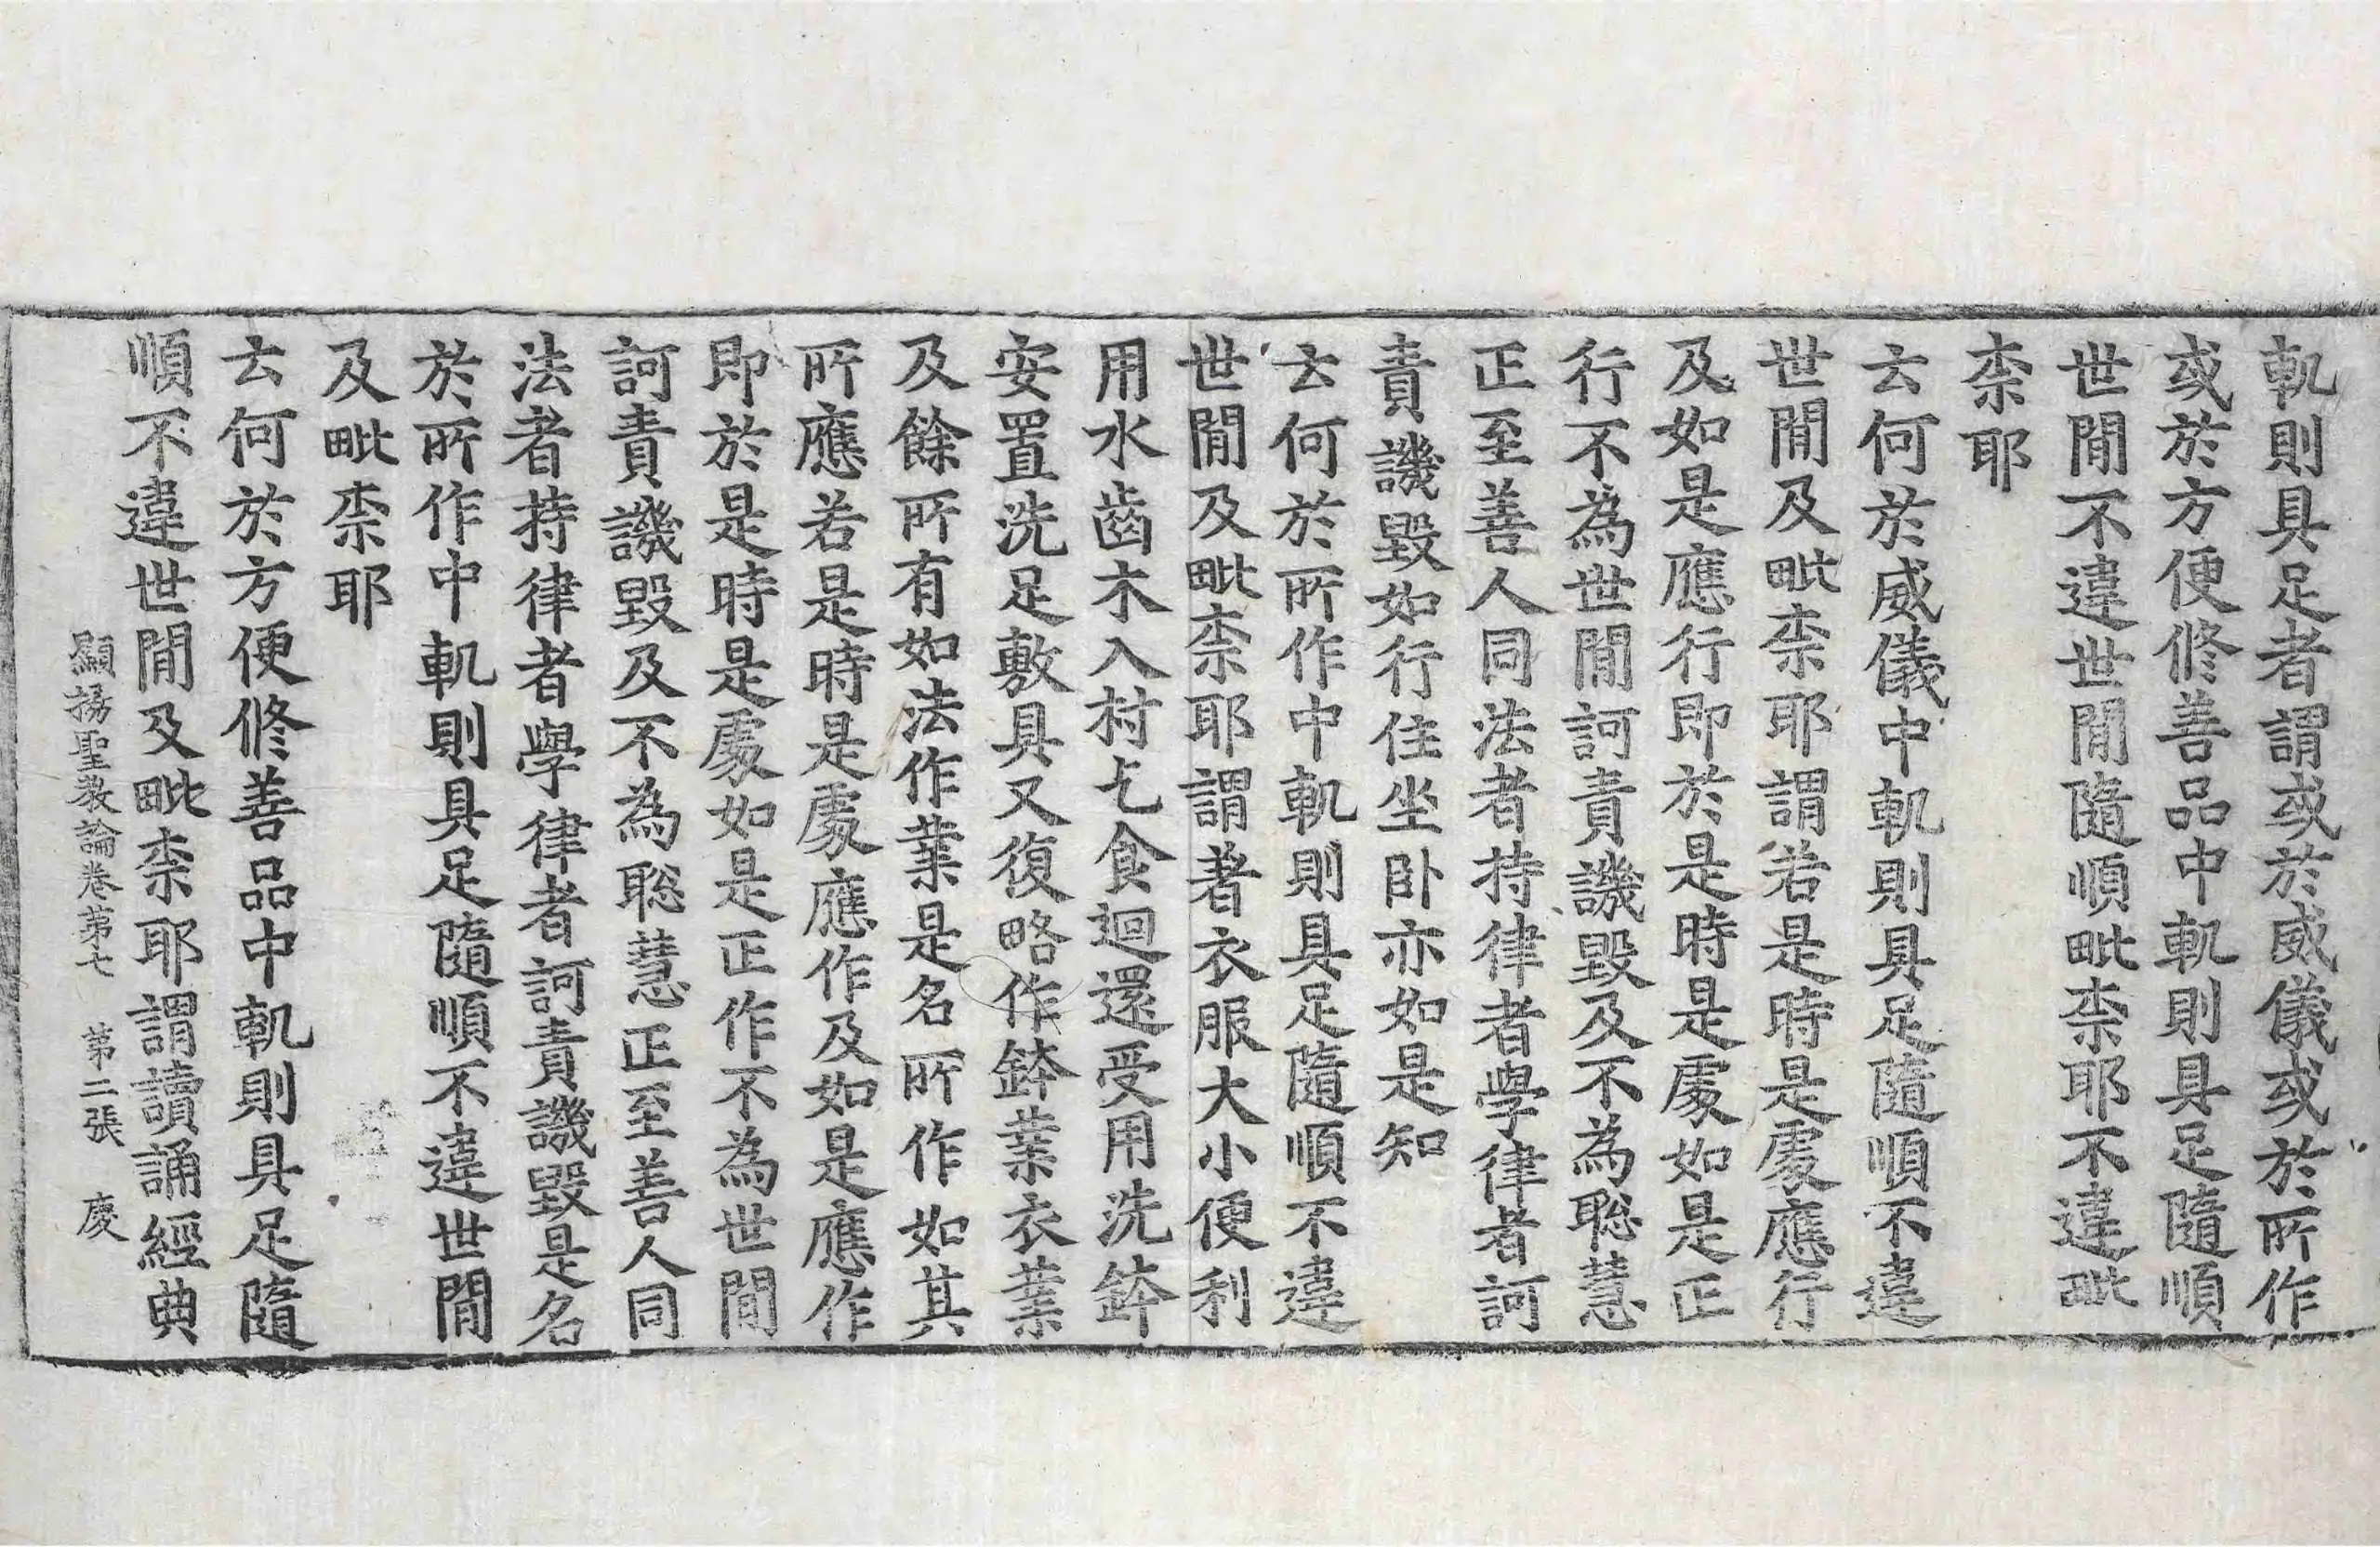 軌則具足者謂或於威儀或於所作
或於方便修善品中軌則具足隨順
世間不違世間隨順毗柰耶不違毗
柰耶
云何於威儀中軌則具足隨順不違
世間及毗柰耶謂若是時是處應行
及如是應行即於是時是處如是正
行不為世間訶責譏毀及不為聡慧
正至善人同法者持律者學律者訶
責譏毀如行住坐卧亦如是知
云何於所作中軌則具足隨順不違
世間及毗柰耶謂著衣服大小便利
用水齒木入村乞食迴還受用洗鉢
安置洗足敷具又復略作鉢業衣業
及餘所有如法作業是名所作如其
所應若是時是處應作及如是應作
即於是時是處如是正作不為世間
訶責譏毀及不為聡慧正至善人同
法者持律者學律者訶責譏毀是名
於所作中軌則具足隨順不違世間
及毗柰耶
云何於方便修善品中軌則具足隨
順不違世間及毗柰耶謂讀誦經典
顯揚聖教論卷第七 第二張 慶